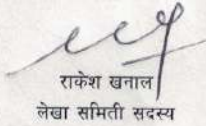 राकेश खनाल
लेखा समिती सदस्य